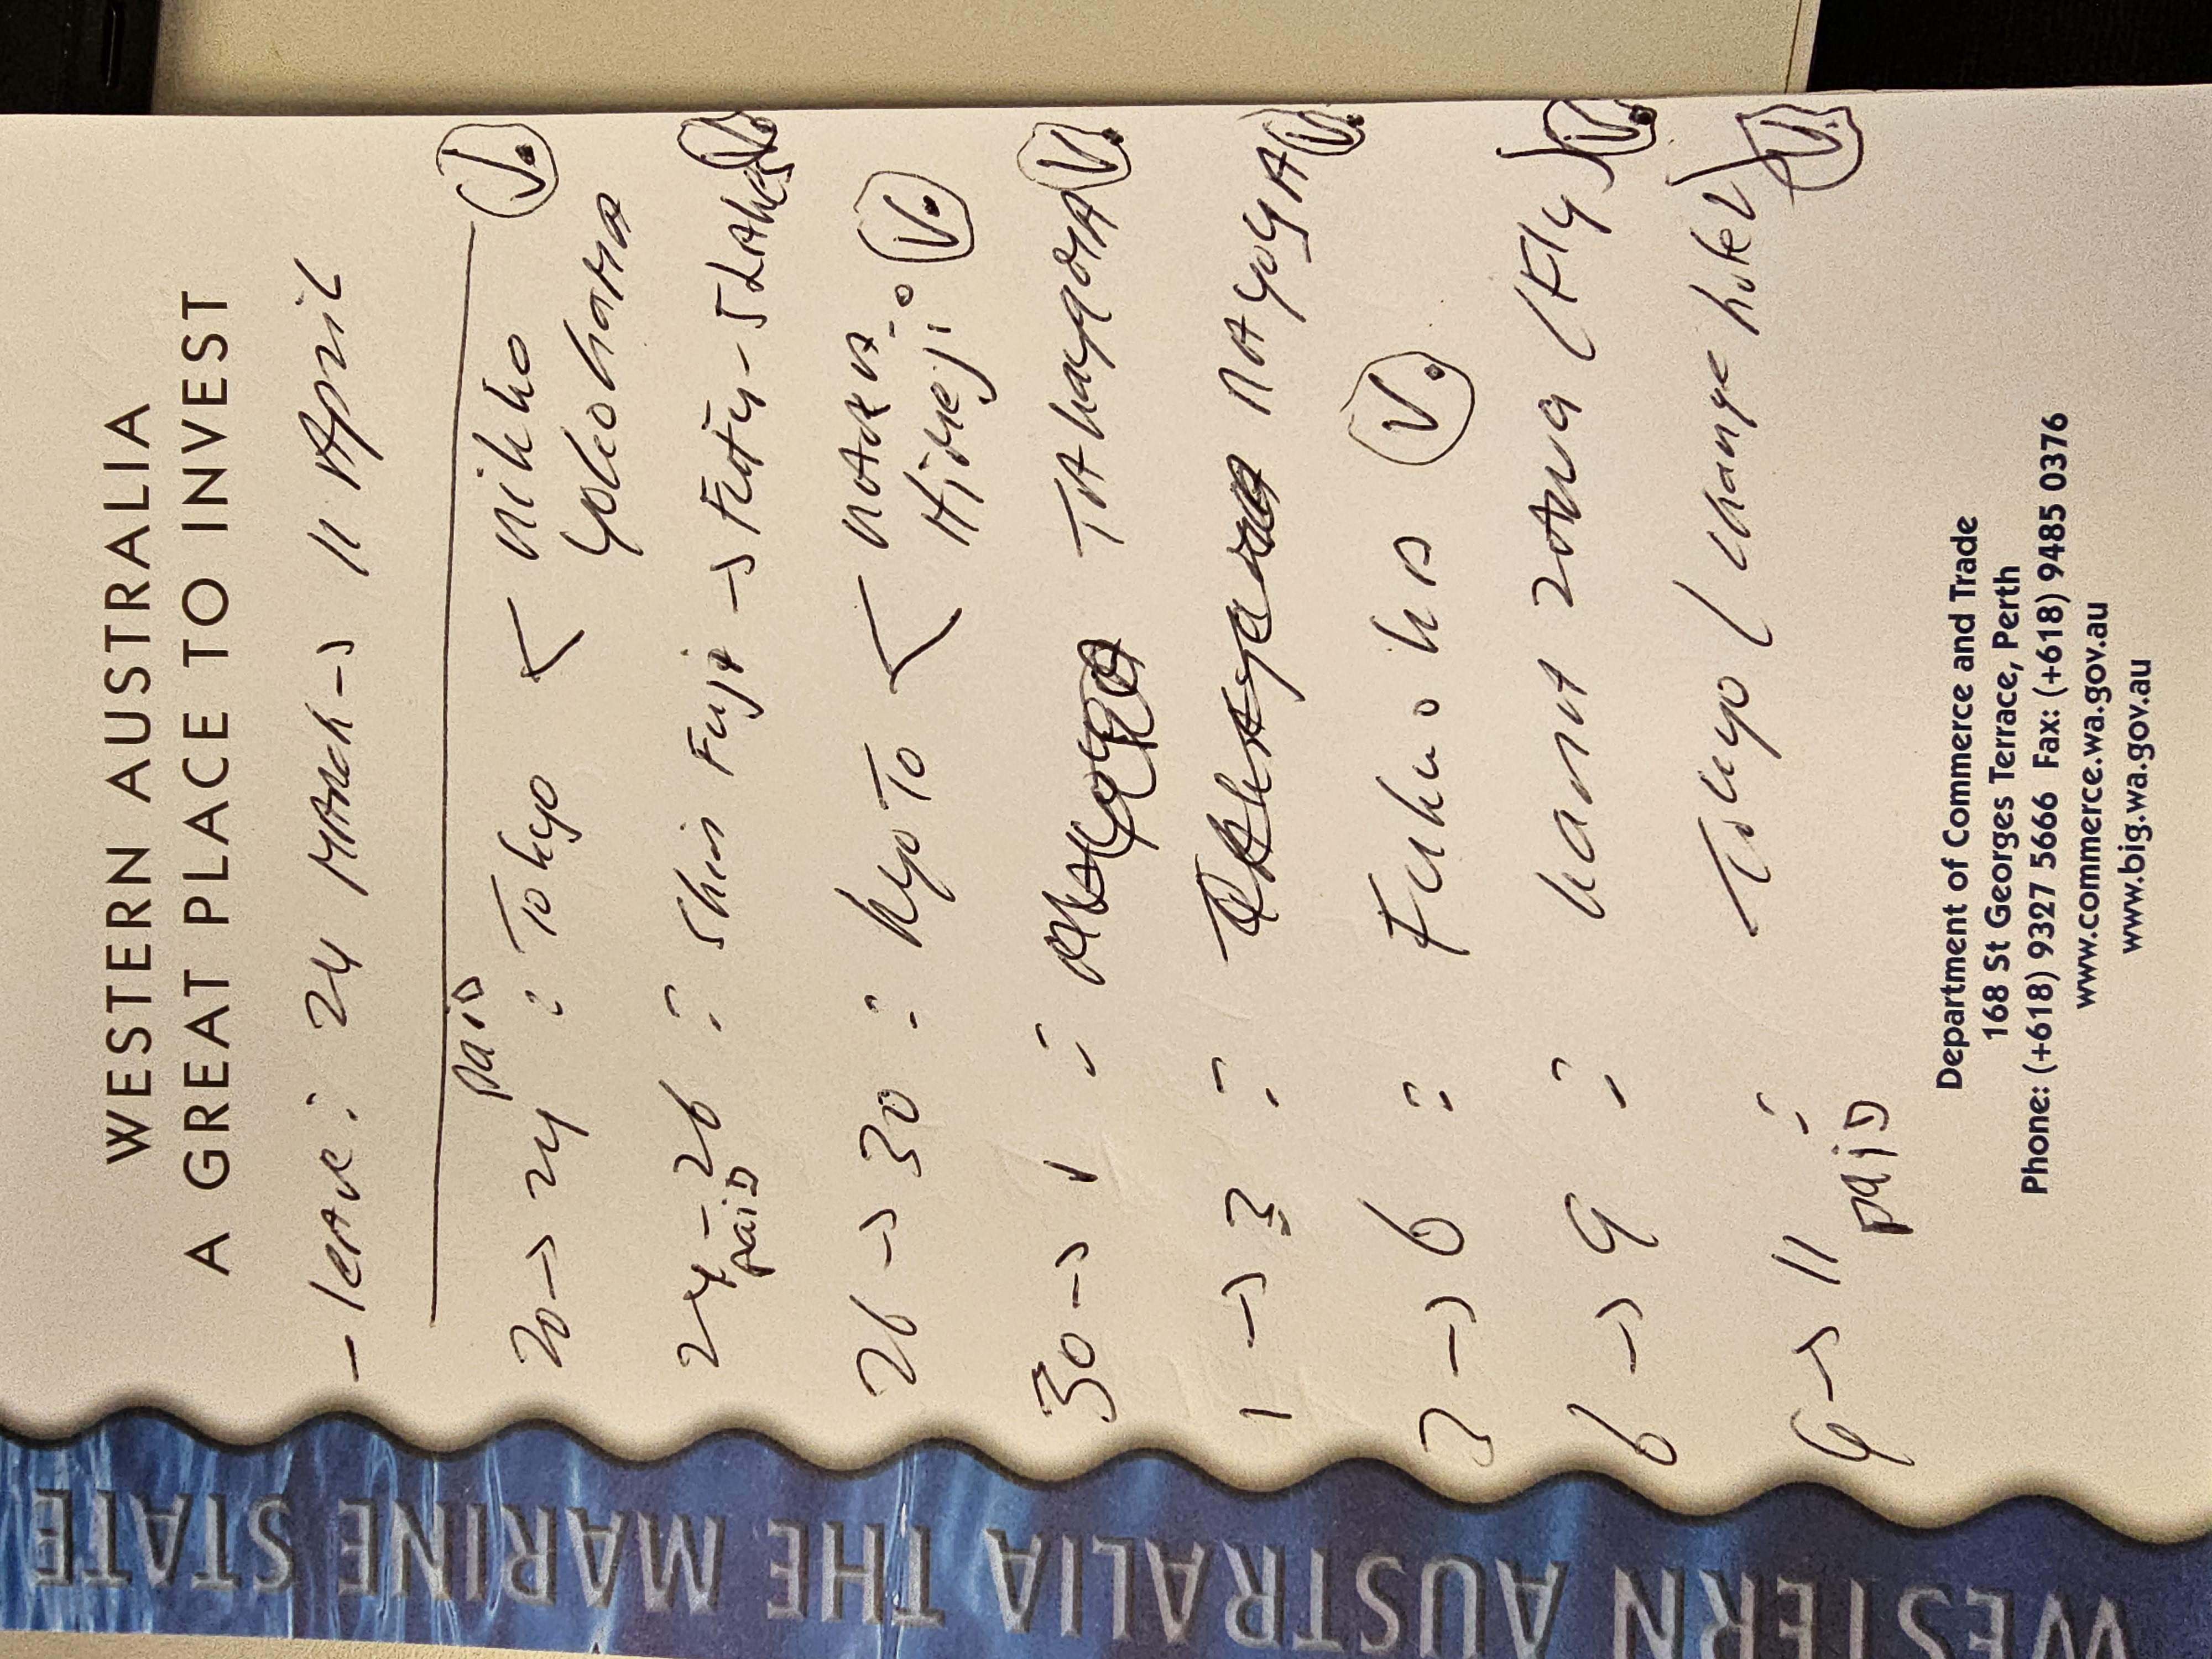 WESTERN AUSTRALIA
A GREAT PLACE TO INVEST
- leave : 24 March -> 11 April
20 -> 24 paid : Tokyo < nikko V.
yokohama
24 - 26 : Shin Fuji -> Fuji - 5 Lakes V.
paid
26 -> 30 : Kyoto < nara V.
Himeji
30 -> 1 : Takayama V.
1 -> 3 : nagoya V.
3 -> 6 : Fukuoka V.
6 -> 9 : kanazawa (Fly) V.
9 -> 11 : Tokyo (change hotel) V.
paid
Department of Commerce and Trade
168 St Georges Terrace, Perth
Phone: (+618) 9327 5666 Fax: (+618) 9485 0376
www.commerce.wa.gov.au
www.big.wa.gov.au
WESTERN AUSTRALIA THE MARINE STATE